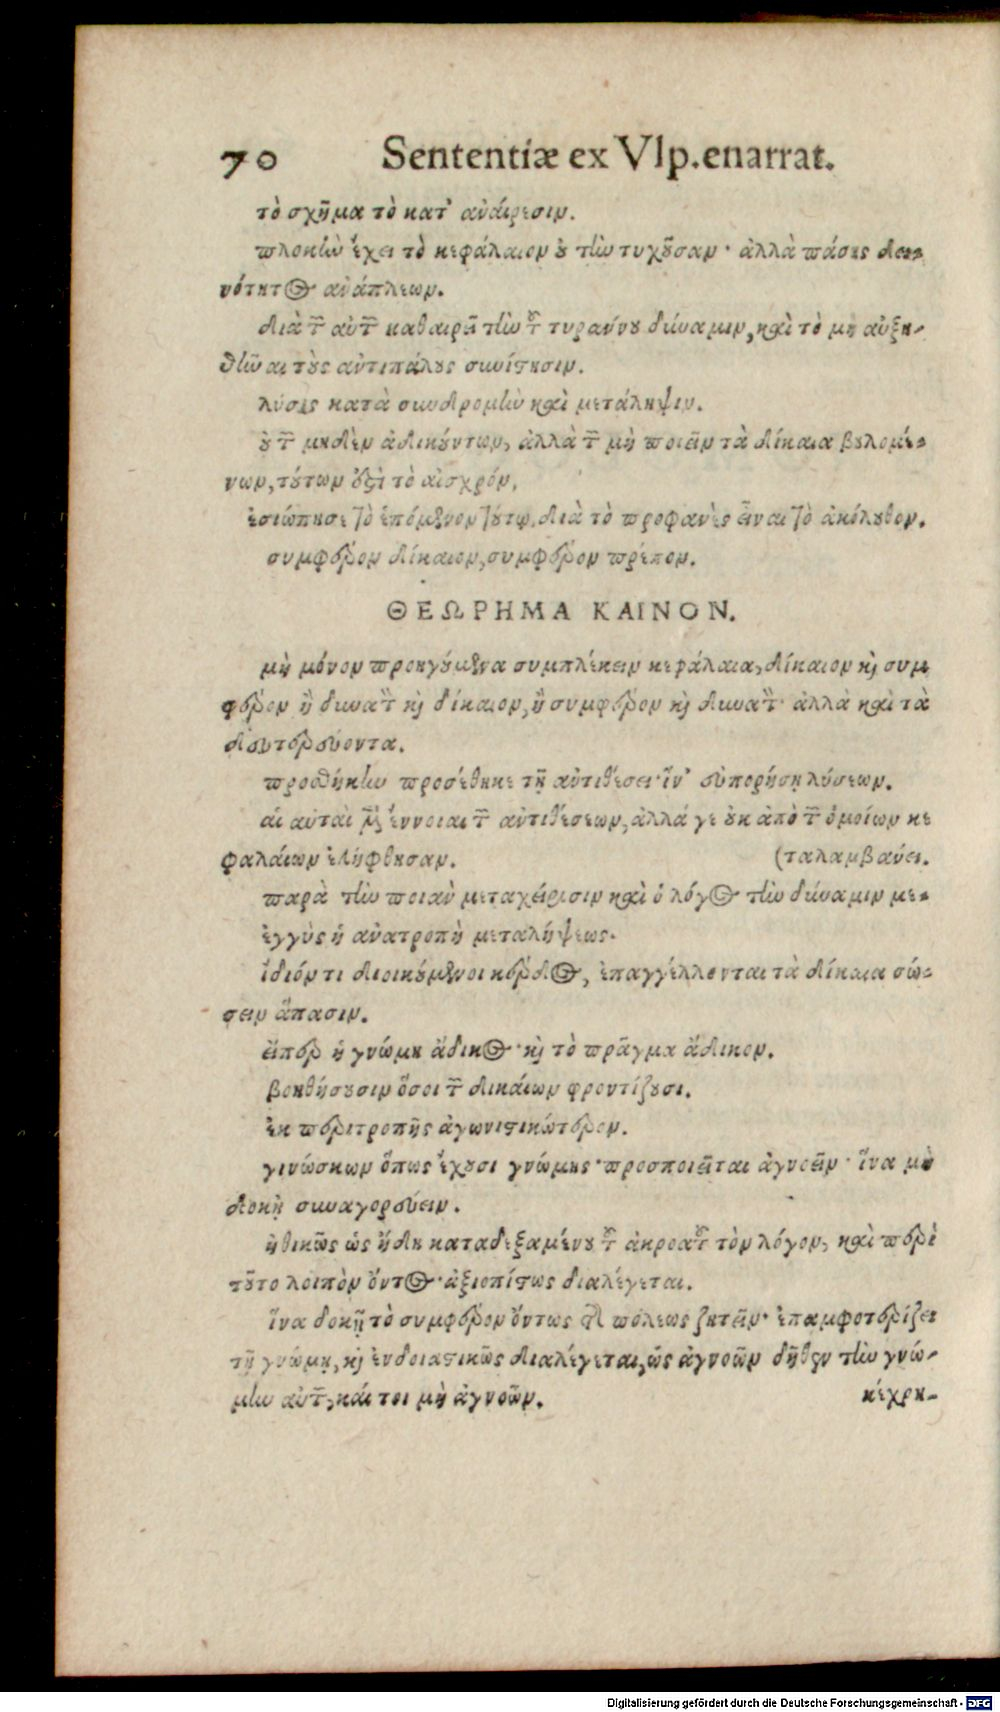 70 Sententiæ ex Vlp.enarrat.
τὸ σχῆμα τὸ κατ' ἀναίρεσιν.
πλοκὴν ἔχει τὸ κεφάλαιον οὐ τὴν τυχοῦσαν· ἀλλὰ πάσης δει-
νότητος ἀνάπλεων.
διὰ τῶν αὐτῶν καθαιρεῖ τὴν τοῦ τυράννου δύναμιν, καὶ τὸ μὴ αὐξη-
θῆναι τοὺς ἀντιπάλους συνίστησιν.
λύσις κατὰ συνδρομὴν καὶ μετάληψιν.
οὐ τῶν μηδὲν ἀδικούντων, ἀλλὰ τῶν μὴ ποιεῖν τὰ δίκαια βουλομέ-
νων, τούτων ἐστὶ τὸ αἰσχρόν.
ἐσιώπησε τὸ ἑπόμενον τούτῳ, διὰ τὸ προφανὲς εἶναι τὸ ἀκόλουθον.
συμφέρον δίκαιον, συμφέρον πρέπον.
ΘΕΩΡΗΜΑ ΚΑΙΝΟΝ.
μὴ μόνον προηγούμενα συμπλέκειν κεφάλαια, δίκαιον καὶ συμ
φέρον ἢ δυνατὸν καὶ δίκαιον, ἢ συμφέρον καὶ δυνατόν· ἀλλὰ καὶ τὰ
δευτερεύοντα.
προσθήκην προσέθηκε τῇ ἀντιθέσει· ἵν' εὐπορήσῃ λύσεων.
αἱ αὐταὶ μὲν ἔννοιαι τῶν ἀντιθέσεων, ἀλλά γε οὐκ ἀπὸ τῶν ὁμοίων κε
φαλαίων ἐλήφθησαν. (ταλαμβάνει.
παρὰ τὴν ποιὰν μεταχείρισιν καὶ ὁ λόγος τὴν δύναμιν με-
ἐγγὺς ἡ ἀνατροπὴ μεταλήψεως.
ἴδιόν τι διοικούμενοι κέρδος, ἐπαγγέλλονται τὰ δίκαια σώ-
σειν ἅπασιν.
εἴπερ ἡ γνώμη ἄδικος· καὶ τὸ πρᾶγμα ἄδικον.
βοηθήσουσιν ὅσοι τῶν δικαίων φροντίζουσι.
ἐκ περιτροπῆς ἀγωνιστικώτερον.
γινώσκων ὅπως ἔχουσι γνώμης· προσποιεῖται ἀγνοεῖν· ἵνα μὴ
δοκῇ συναγορεύειν.
ἠθικῶς ὡς ἤδη καταδεξαμένου τοῦ ἀκροατοῦ τὸν λόγον, καὶ περὶ
τοῦτο λοιπὸν ὄντος· ἀξιοπίστως διαλέγεται.
ἵνα δοκῇ τὸ συμφέρον ὄντως τῆς πόλεως ζητεῖν· ἐπαμφοτερίζει
τῇ γνώμῃ, καὶ ἐνδοιαστικῶς διαλέγεται, ὡς ἀγνοῶν δῆθεν τὴν γνώ-
μην αὐτῶν, καίτοι μὴ ἀγνοῶν. κέχρη-
Digitalisierung gefördert durch die Deutsche Forschungsgemeinschaft - DFG